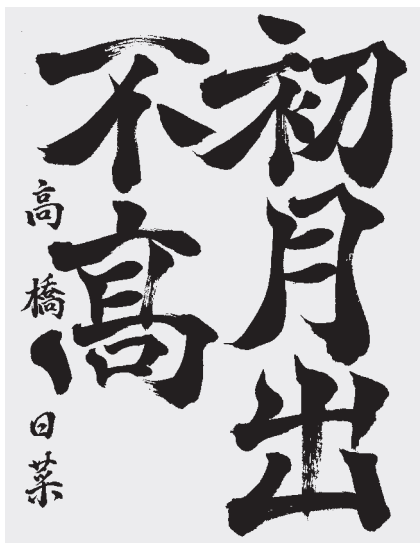 初月出
不髙
高橋日菜